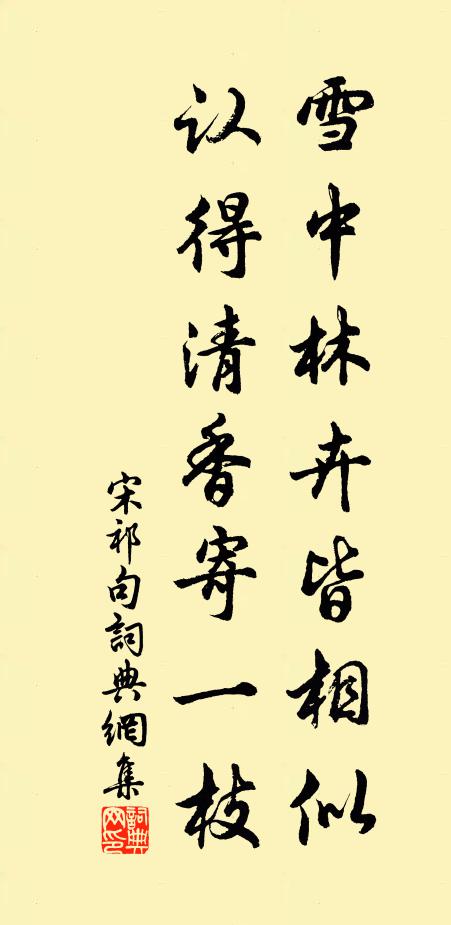 雪中林卉皆相似
认得清香寄一枝
宋祁句詞典網集
詞典网印